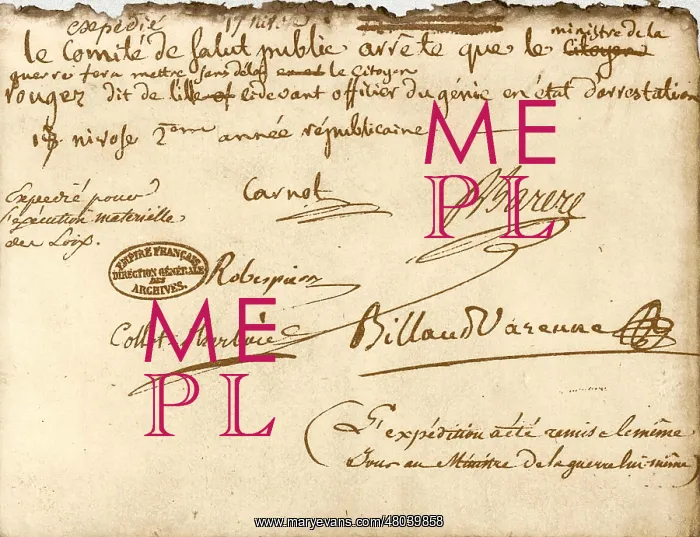 expédié 17 niv.
le Comité de Salut public arrête que le ministre de la Citoyen
guerre fera mettre sans délay le Citoyen
rouger dit de lille cidevant officier du génie en état d'arrestation
18 nivose 2eme année républicaine
Carnot BBarere
Expedié pour
l'exécution materielle
des Loix.
EMPIRE FRANÇAIS
DIRECTION GÉNÉRALE
DES
ARCHIVES.
Robespierre
Collot-d'herbois Billaud Varenne
(L'expédition a été remise le même
Jour au Ministre de la guerre lui-même)
ME
PL
ME
PL
www.maryevans.com/48039858